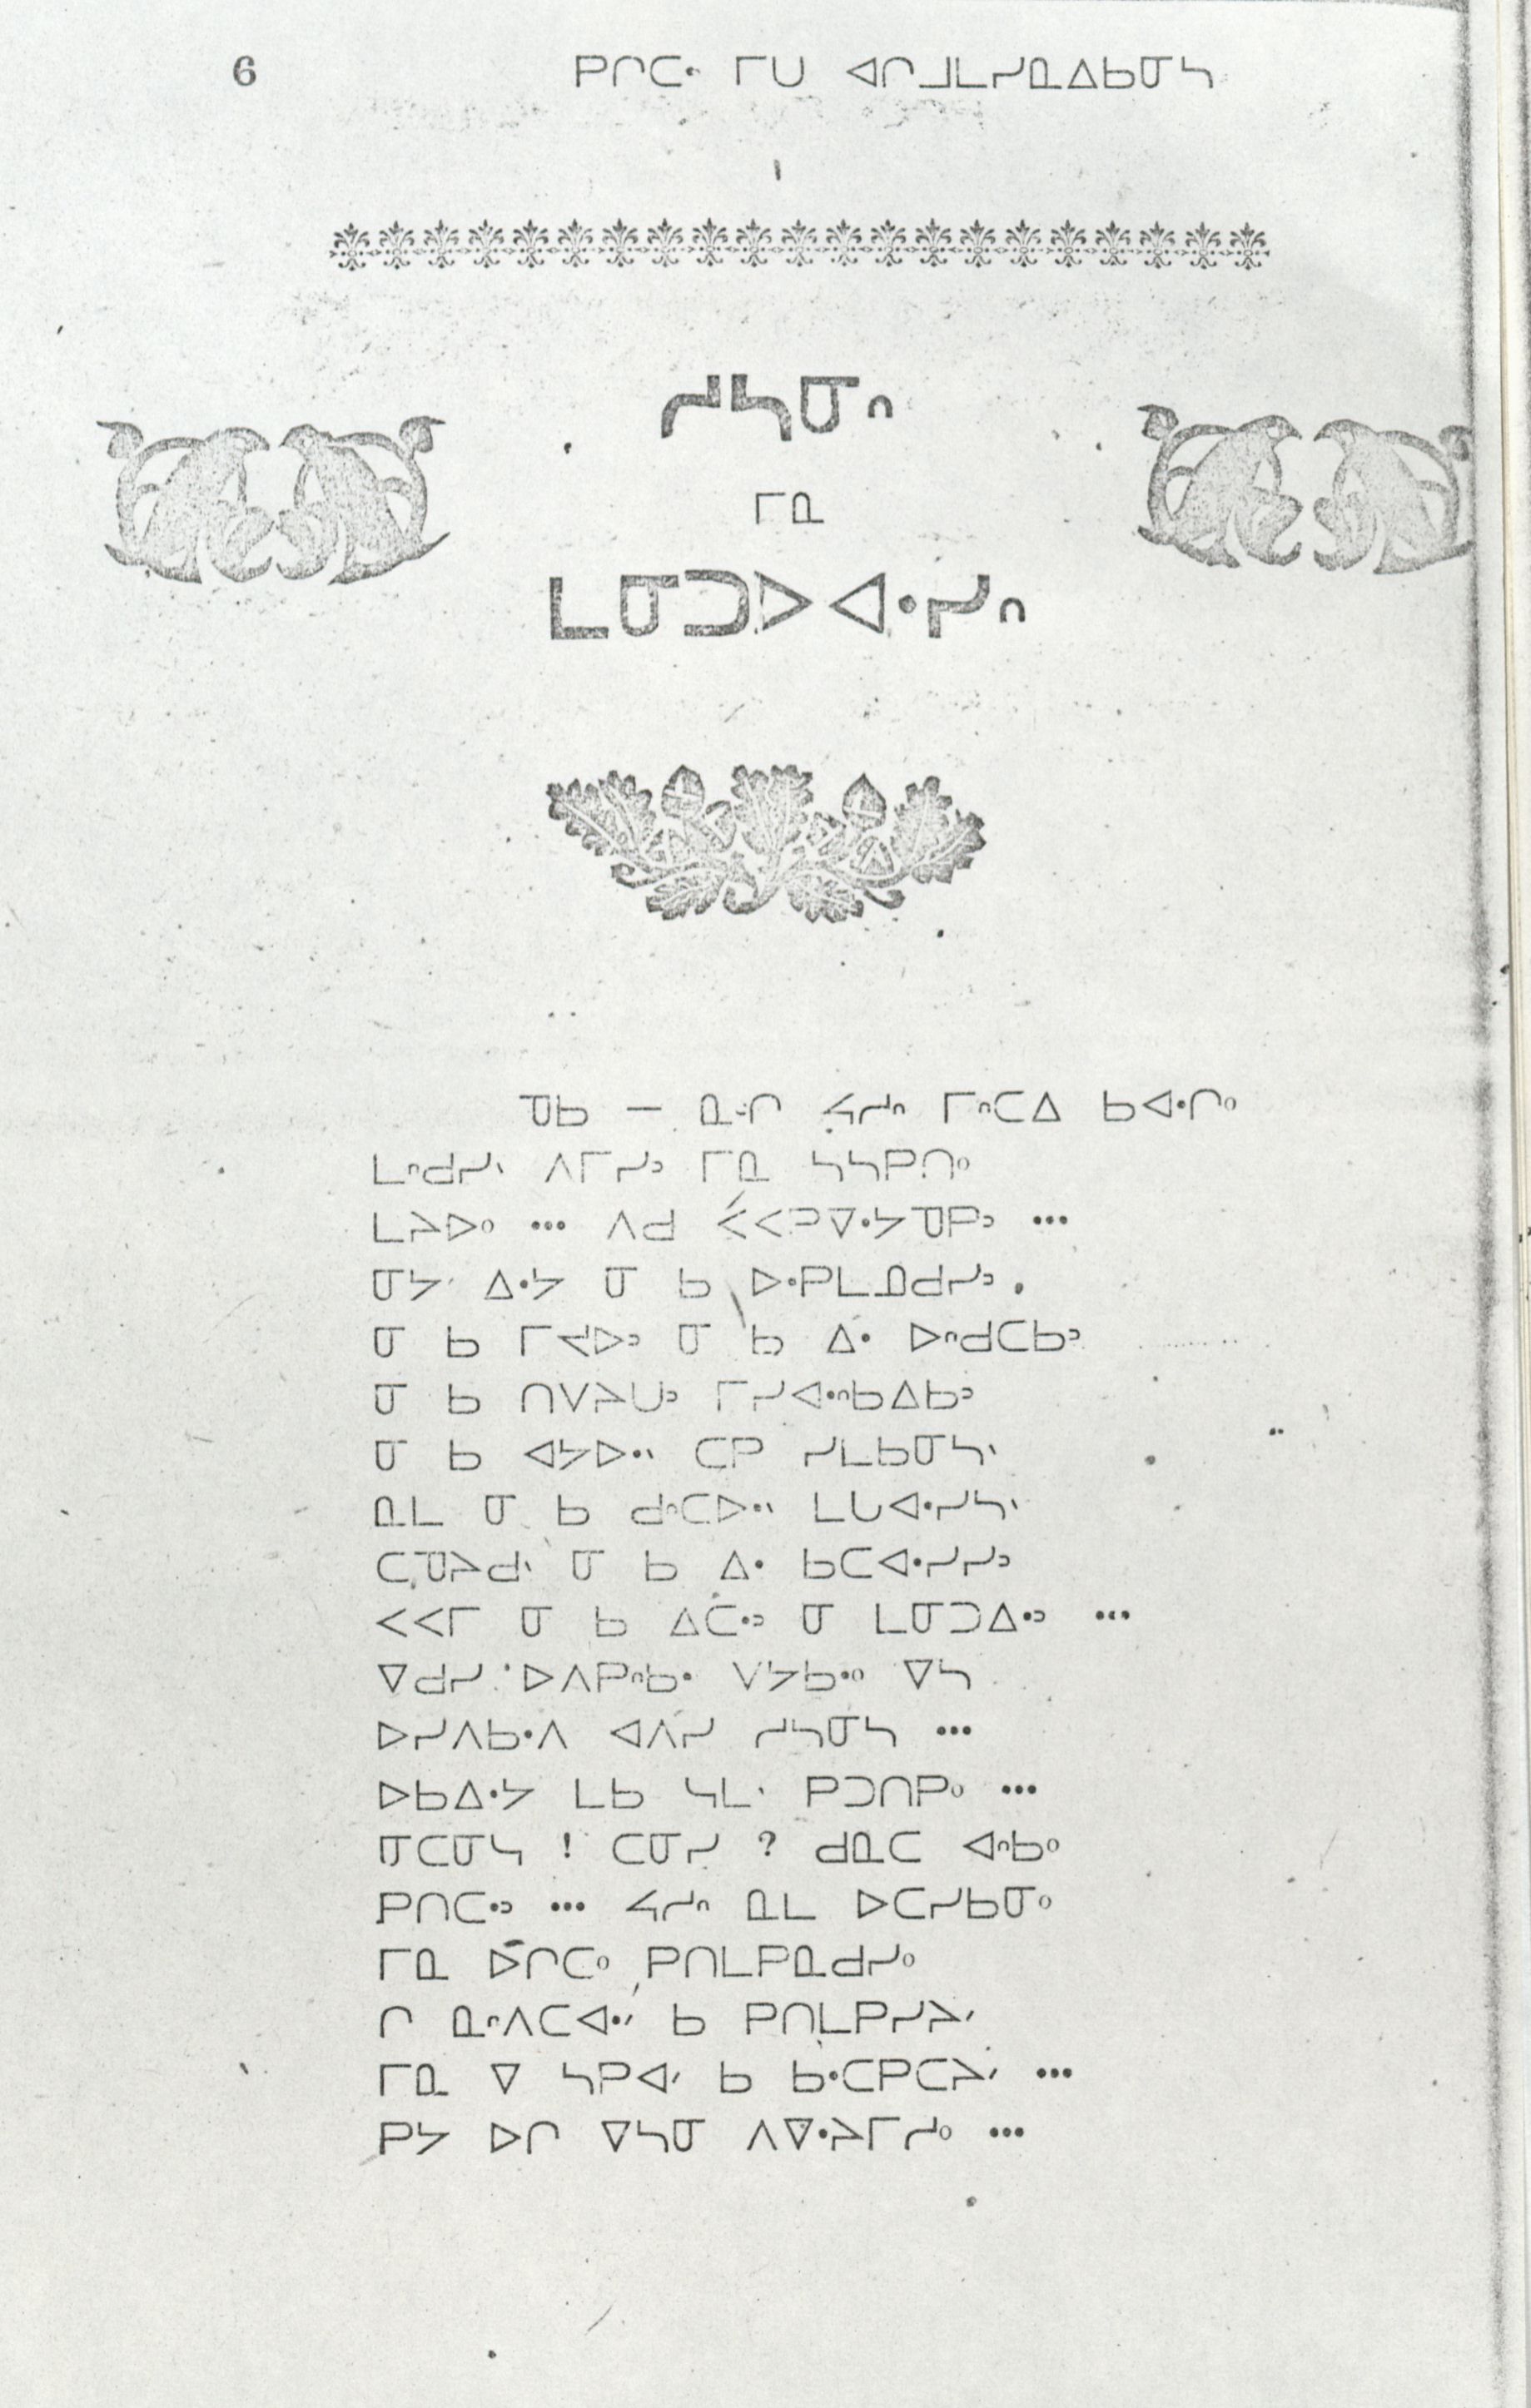 6 ᑭᒋᑕᐧ ᒥᑌ ᐊᒋᒧᒪᓯᓇᐃᑲᓂᓴ
ᓱᓴᓂᐢ
ᒥᓇ
ᒪᓂᑐᐅ ᐊᐧᓯᐢ
ᓀᑲ — ᓇᐢᒋ ᔕᓱᐢ ᒥᐢᑕᐃ ᑲᐊᐧᒋᐤ
ᒪᐢᑯᓯᐠ ᐱᒥᓯᐣ ᒥᓇ ᓴᓴᑭᑎᐤ
ᒪᔨᐅᐤ ... ᐱᑯ ᐸᐸᑐᐁᐧᔭᓀᑭᐣ ...
ᓂᔭ ᐃᐧᔭ ᓂ ᑲ ᐅᐧᑭᒪᓄᑯᓯᐣ .
ᓂ ᑲ ᒥᔪᐅᐣ ᓂ ᑲ ᐃᐧ ᐅᐢᑯᑕᑲᐣ
ᓂ ᑲ ᑎᐯᔨᑌᐣ ᒥᓯᐊᐧᐢᑲᐃᑲᐣ
ᓂ ᑲ ᐊᔭᐅᐧᐠ ᑕᑭ ᓯᒪᑲᓂᓴᐠ
ᓇᒪ ᓂ ᑲ ᑯᐢᑕᐅᐧᐠ ᒪᑌᐊᐧᓯᓴᐠ
ᑕᓀᔨᑯᐠ ᓂ ᑲ ᐃᐧ ᑲᑕᐊᐧᓯᓯᐣ
ᐸᐸᒥ ᓂ ᑲ ᐃᑕᐧᐣ ᓂ ᒪᓂᑐᐃᐧᐣ ...
ᐁᑯᓯ ᐅᐱᑭᐢᑲᐧ ᐯᔭᑲᐧᐤ ᐁᓴ
ᐅᓯᐱᑲᐧᐱ ᐊᐱᓯ ᓱᓴᓂᓴ ...
ᐅᑲᐃᐧᔭ ᒪᑲ ᓴᒪᐠ ᑭᑐᑎᑭᐤ ...
ᓂᑕᓂᓴ ! ᑕᓂᓯ ? ᑯᓇᑕ ᐊᐢᑲᐤ
ᑭᑎᑕᐧᐣ ... ᔕᓱᐢ ᓇᒪ ᐅᑕᓯᑲᓂᐤ
ᒥᓇ ᐅᒋᑕᐤ ᑭᑎᒪᑭᓇᑯᓯᐤ
ᒋ ᓇᐢᐱᑕᐊᐧᐟ ᑲ ᑭᑎᒪᑭᓯᔨᐟ
ᒥᓇ ᐁ ᓴᑭᐊᐟ ᑲ ᑲᐧᑕᑭᑕᔨᐟ ...
ᑭᔭ ᐅᒋ ᐁᓴᓂ ᐱᐁᐧᔨᒥᓱᐤ ...